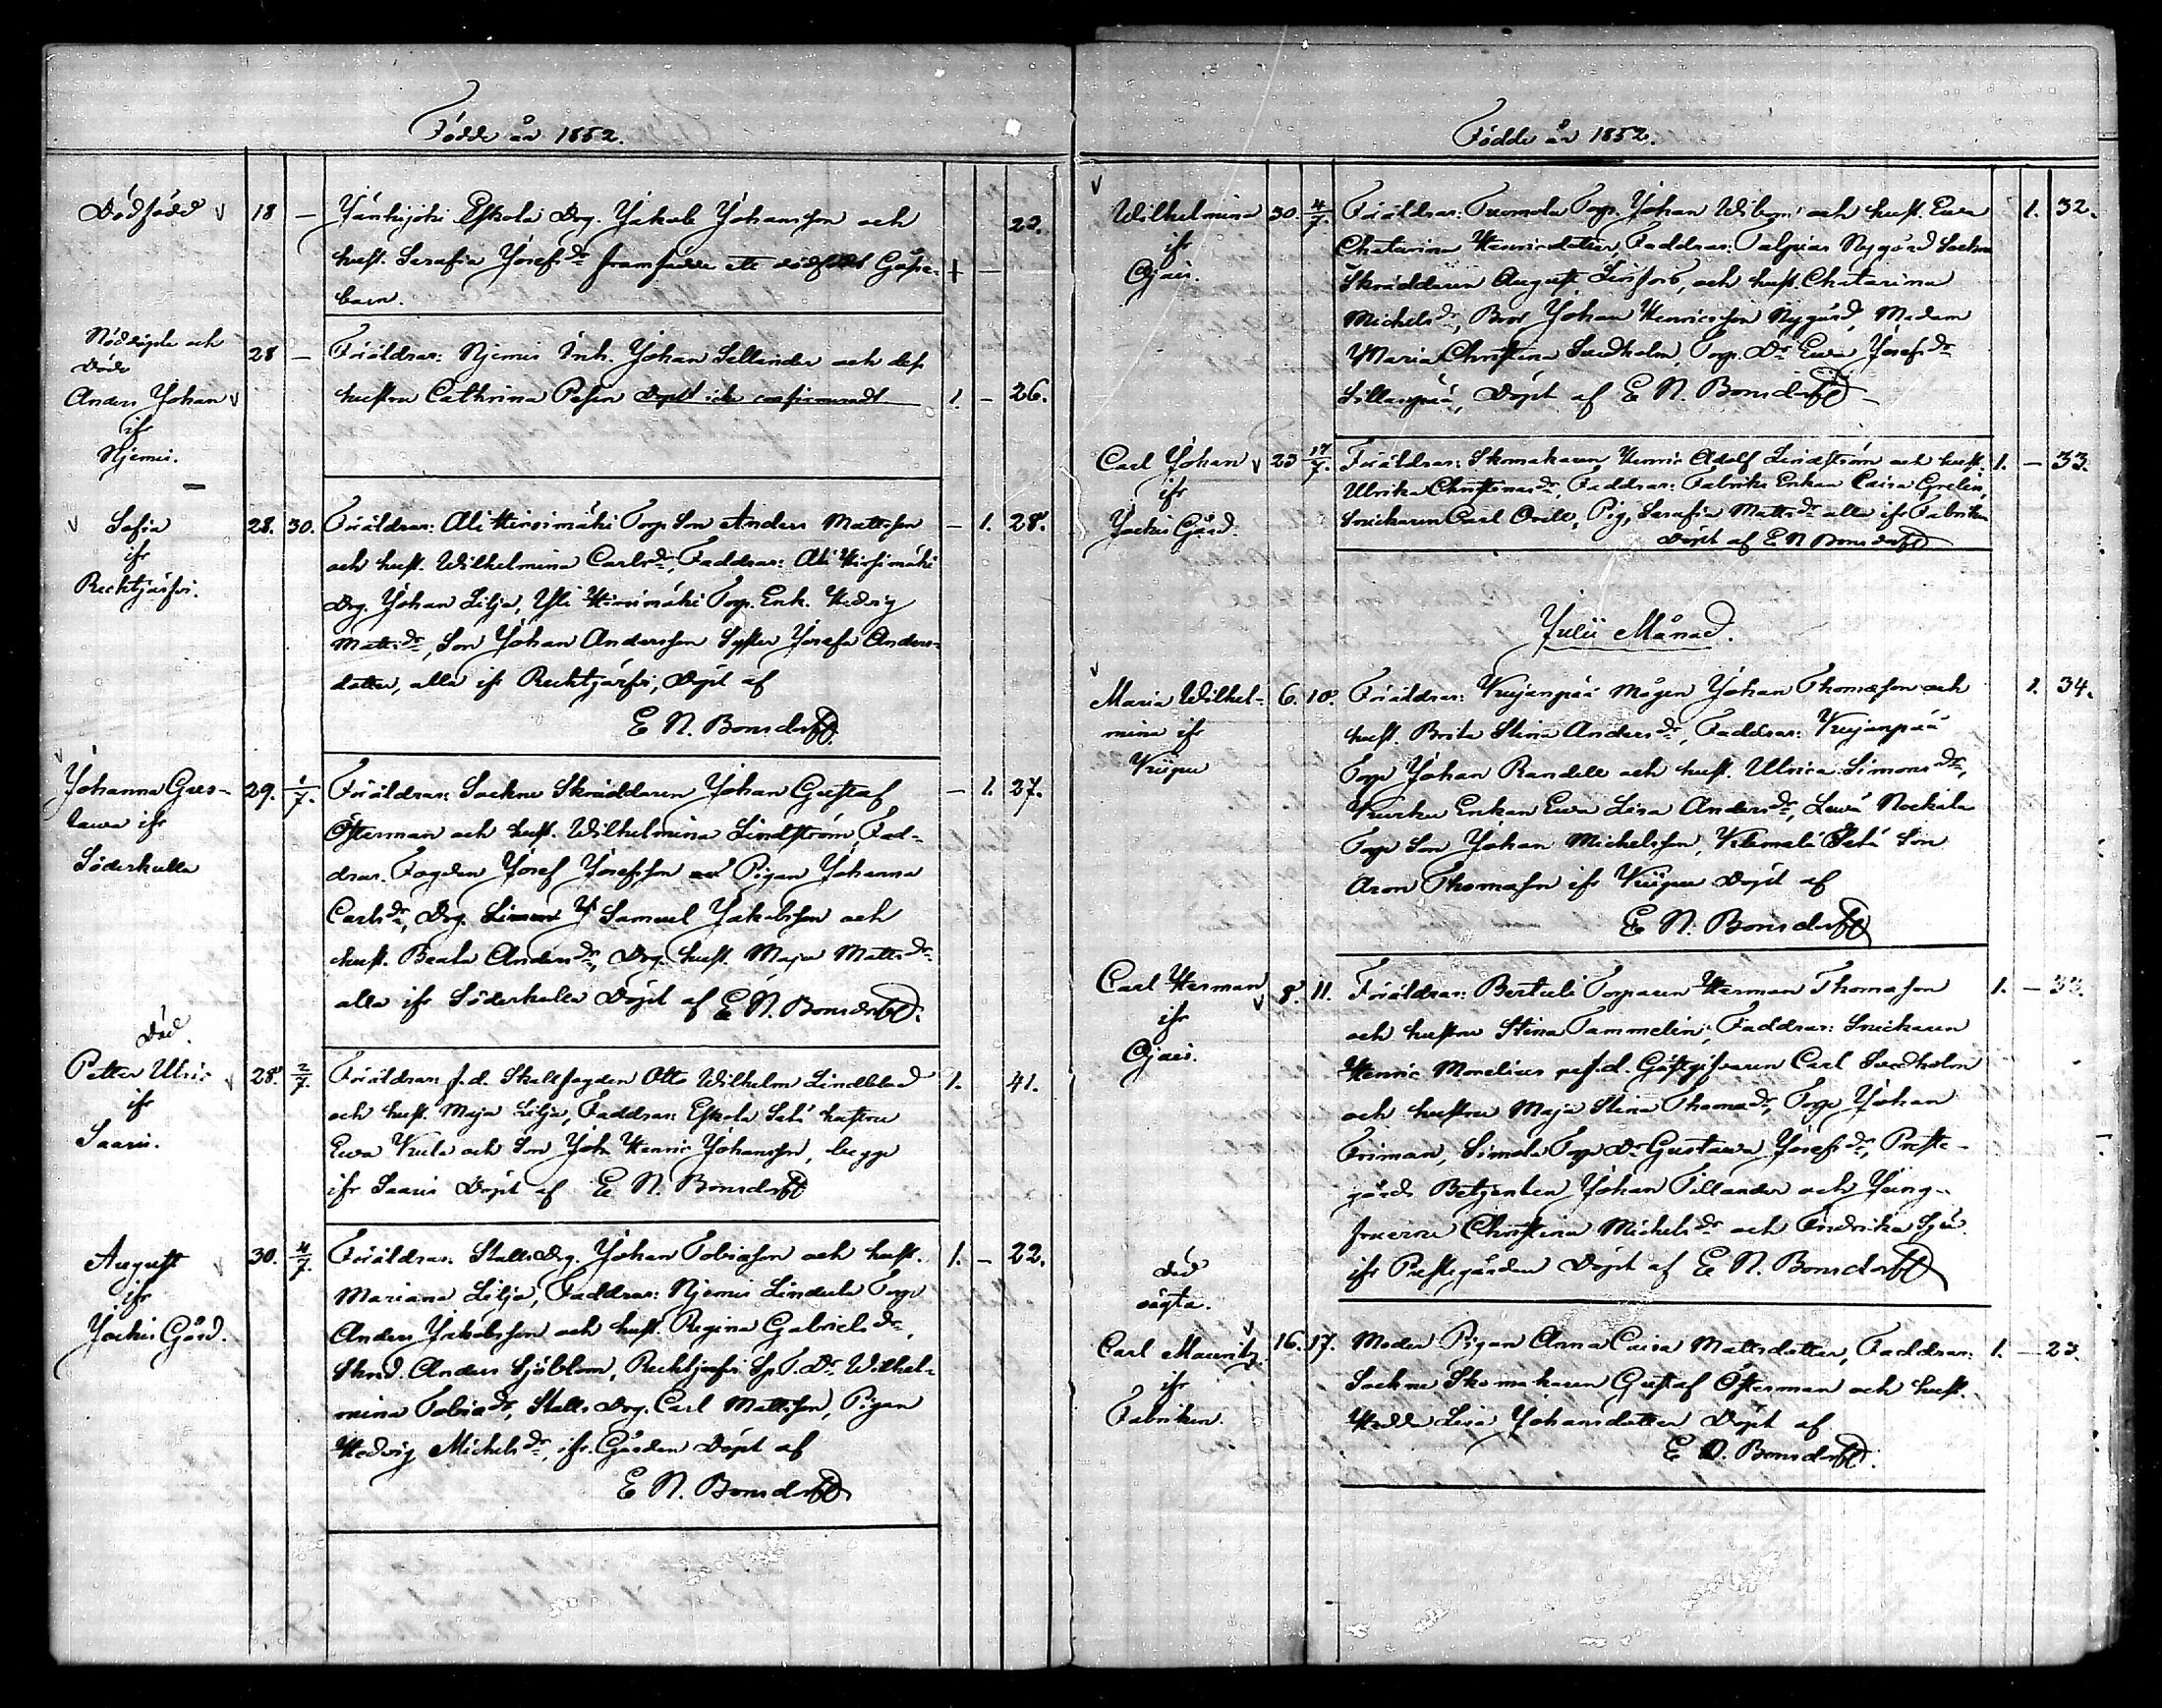 Födde år 1852.
Dödfödd 18 — Jänhijoki Eskola Drg. Jakob Johansson och 22.
hust. Serafia Josefsdr framfödde ett dödfödt Gåsse- + —
barn.
Nöddöpte och
döde
Anders Johan
ifr
Njemis.
28 — Föräldrar: Njemis Inh. Johan Sellander och dess
hustru Cathrina 1. — 26.
Sofia
ifr
28. 30. Föräldrar: Ali Hirsimäki Torp. Son Anders Mattsson — 1. 28.
och hust. Wilhelmina Carlsdr, Faddrar: Ali Hirsimäki
Drg. Johan Lilja, Yli Hirsimäki Torp. Enk. Hedvig
Mattsdr, Son Johan Andersson Syster Josefa Anders-
dotter, alla ifr Döpt af
E N. Bonsdorff.
Johanna Gus-
tava ifr
Söderkulla
29. 1/7. Föräldrar: Sockne Skräddaren Johan Gustaf — 1. 27.
Österman och hust. Wilhelmina Lindström, Fad-
drar. Fogden Josef Josefsson Pigan Johanna
Carlsdr, Drg. Samuel Jakobsson och
hust. Beata Andersdr, Drg. hust. Maja Mattsdr
alla ifr Söderkulla Döpt af E N. Bonsdorff.
Död.
Petter Ulric
ifr
Saaris.
28. 2/7. Föräldrar f.d. Otto Wilhelm Lindblad 1. 41.
och hust. Maja Lilja, Faddrar: Eskola hustru
Ewa och Son Joh. Henric Johansson, begge
ifr Saaris Döpt af E. N. Bonsdorff
August
ifr
Jockis Gård.
30. 4/7. Föräldrar. Stalls Drg. Johan Tobiasson och hust. 1. — 22.
Mariana Lilja, Faddrar: Njemis Lindula Torp
Anders Jakobsson och hust. Regina Gabrielsdr,
Skrd. Anders Sjöblom, Wilhel-
mina Tobiasdr, Stalls Drg. Carl Mattsson, Pigan
Hedvig Michelsdr, ifr. Gården Döpt af
E N. Bonsdorff
Födde år 1852.
Wilhelmina
ifr
Ojais.
30. 4/7. Föräldrar: Tuomola Torp. Johan och hust. Ewa 1. 32.
Chatarina Henricsdotter, Faddrar: Nygård Sockne
Skräddaren August och hust. Chatarina
Michelsdr, Bror Johan Henricsson Nygård, Madam
Maria Christina Sundholm, Torp. Dr Ewa Josefsdr
Sillanpää, Döpt af E N. Bonsdorff
Carl Johan
ifr
Jockis Gård.
23 17/7. Föräldrar: Skomakaren Henric Adolf Lindström och hust. 1. — 33.
Ulrika Christinasdr, Faddrar: Fabriks Enkan Caisa Grelin,
Snickaren Carl Orell, Pig. Serafia Mattsdr alla ifr Fabriken
Döpt af E N Bonsdorff
Julii Månad.
Maria Wilhel-
mina ifr
Kiipu
6. 10. Föräldrar: Kujanpää Mågen Johan Thomasson och 1. 34.
hust. Brita Stina Andersdr, Faddrar: Kujanpää
Torp Johan Randell och hust. Ulrica Simonsdr,
Enkan Ewa Lisa Andersdr,
Torp Son Johan Michelsson, Son
Aron Thomasson ifr Kiipu Döpt af
E N. Bonsdorff
Carl Herman
ifr
Ojais.
8. 11. Föräldrar: Bertuli Torparen Herman Thomasson 1. — 33.
och hustru Stina Tammelin; Faddrar: Snickaren
Henric Monelius f.d. Gästgifvaren Carl Sundholm
och hustru Maja Stina Thomasdr, Torp Johan
Friman, Simola Torp Dr Gustava Josefsdr, Preste-
gårds Betjenten Johan Tillander och Jung-
fruerna Christina Michelsdr och Fredrika
ifr Prestegården Döpt af E N. Bonsdorff
Död
oägta.
Carl Mauritz
ifr
Fabriken.
16. 17. Moder Pigan Anna Caisa Mattsdotter, Faddrar: 1. — 23.
Sockne Skomakaren Gustaf Österman och hust.
Hedda Lisa Johansdotter Döpt af
E N. Bonsdorff.